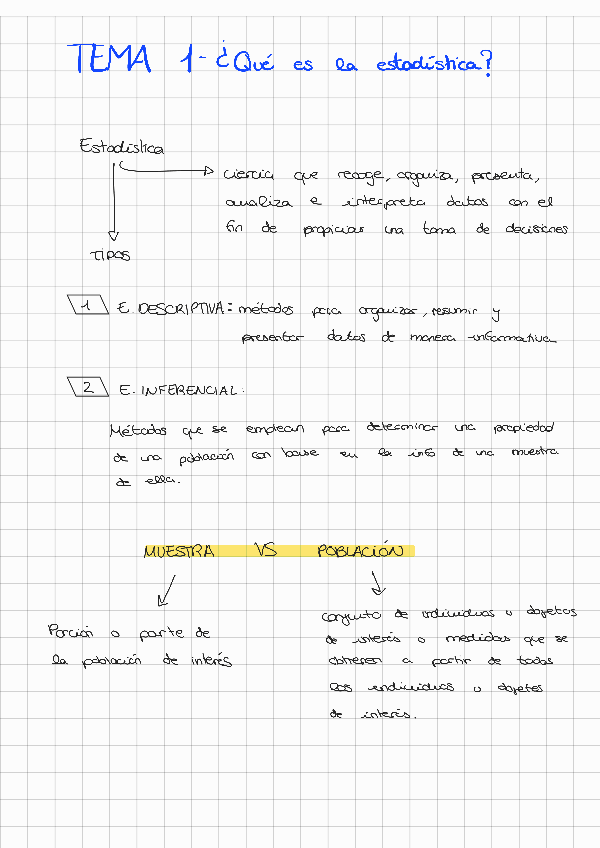 TEMA 1- ¿Qué es la estadística?
Estadística
ciencia que recoge, organiza, presenta,
analiza e interpreta datos con el
fin de propiciar una toma de decisiones
TIPOS
1 E. DESCRIPTIVA: métodos para organizar, resumir y
presentar datos de manera informativa
2 E. INFERENCIAL:
Métodos que se emplean para determinar una propiedad
de una población con base en la info de una muestra
de ella.
MUESTRA VS POBLACIÓN
Porción o parte de
la población de interés
conjunto de individuos u objetos
de interés o medidas que se
obtienen a partir de todos
los individuos u objetos
de interés.